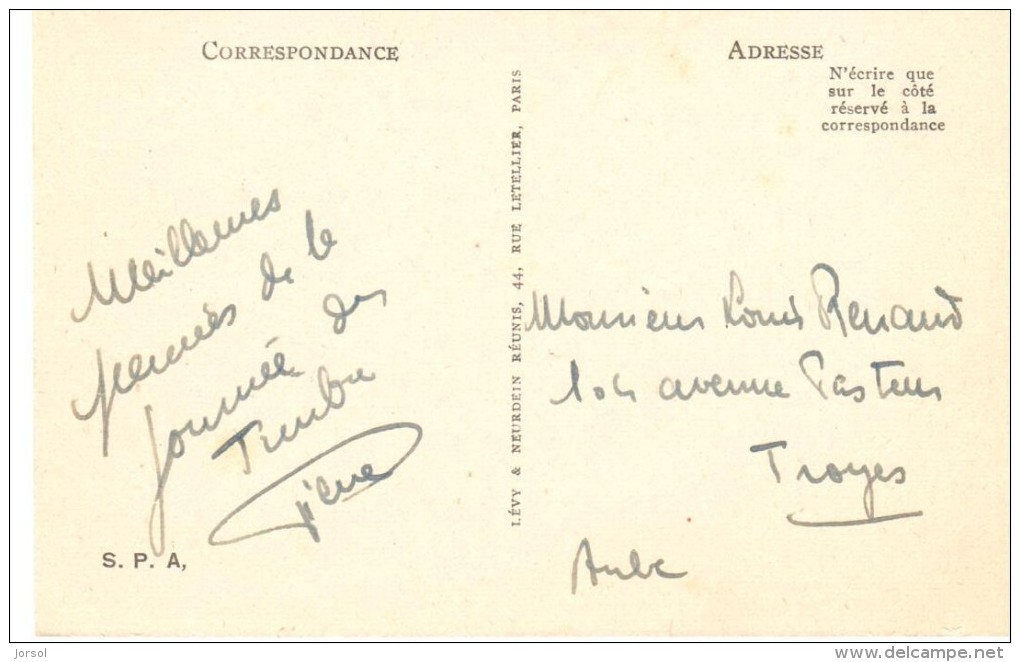 CORRESPONDANCE
Meilleures
pensées de la
Journée du
Timbre
Pierre
S. P. A,
LÉVY & NEURDEIN RÉUNIS, 44, RUE LETELLIER, PARIS
ADRESSE
N'écrire que
sur le côté
réservé à la
correspondance
Monsieur Louis Renaud
avenue Pasteur
Troyes
Aube
Jorsol
www.delcampe.net